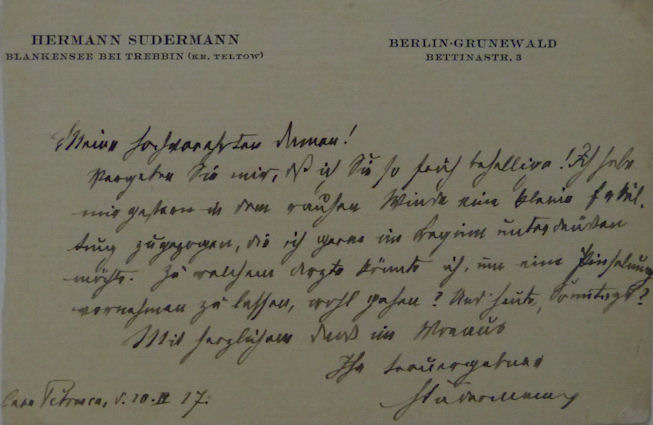 HERMANN SUDERMANN
BLANKENSEE BEI TREBBIN (KR. TELTOW)
BERLIN-GRUNEWALD
BETTINASTR. 3
Meine hochverehrten Damen!
Vergeben Sie mir, daß ich Sie so früh behellige! Ich habe
mir gestern in dem rauhen Winde eine kleine Erkäl-
tung zugezogen, die ich gerne im Beginn unterdrücken
möchte. Zu welchem Arzte könnte ich, um eine Pinselung
vornehmen zu lassen, wohl gehen? Und heute, Sonntags?
Mit herzlichem Dank im Voraus
Ihr treuergebener
Sudermann
Casa Petrarca, d. 10. 27.